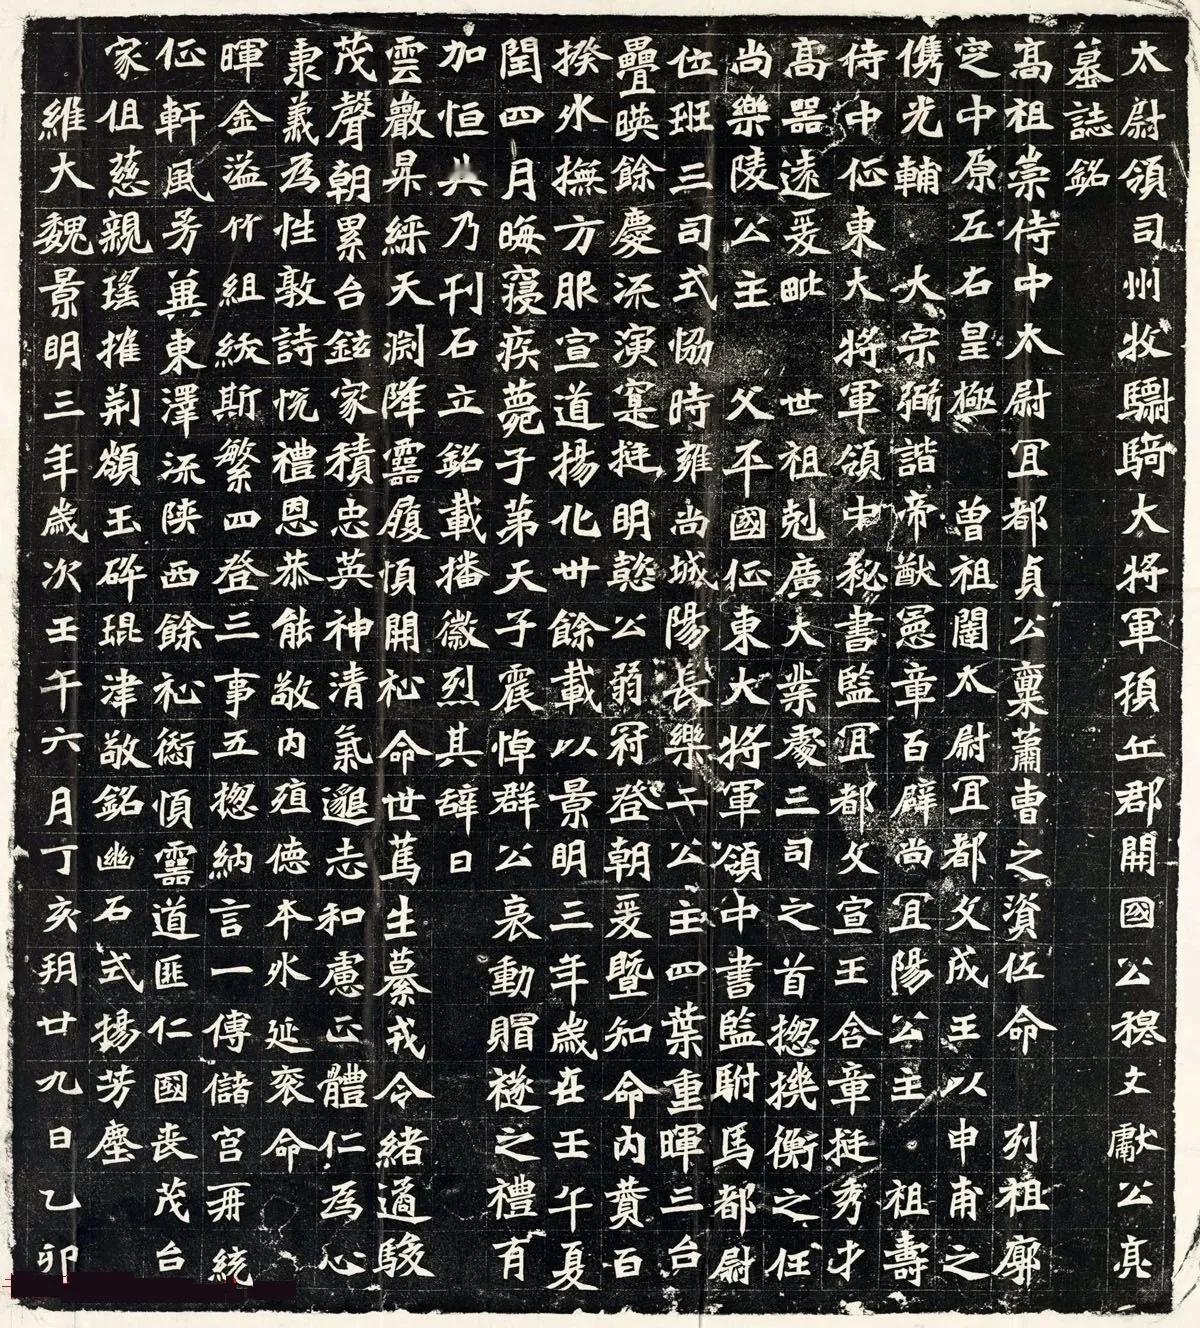 太尉領司州牧驃騎大將軍頓丘郡開國公穆文獻公亮
墓誌銘
高祖崇侍中太尉冝都貞公稟蕭曹之資佐命　列祖廓
定中原左右皇極　曾祖闥太尉冝都文成王以申甫之
儁光輔　大宗弼諧帝猷憲章百辟尚冝陽公主　祖壽
侍中征東大將軍領中秘書監冝都文宣王含章挺秀才
高器遠爰毗　世祖剋廣大業處三司之首揔機衡之任
尚樂陵公主　父平國征東大將軍領中書監駙馬都尉
位班三司式協時雍尚城陽長樂二公主四葉重暉三台
疊暎餘慶流演寔挺明懿公弱冠登朝爰暨知命內賛百
揆外撫方服宣道揚化卅餘載以景明三年歲在壬午夏
閏四月晦寢疾薨于第天子震悼群公哀動賵襚之禮有
加恒典乃刊石立銘載播徽烈其辭曰
雲巖昇綵天淵降靈履順開祉命世篤生纂戎令緒遹駿
茂聲朝累台鉉家積忠英神清氣邈志和慮正體仁為心
秉義為性敦詩悅禮恩恭能敬內殖德本外延袞命
暉金溢竹組綬斯繁四登三事五揔納言一傅儲宮再統
征軒風芳冀東澤流陝西餘祉衒順靈道匪仁國喪茂台
家徂慈親瑤摧荊頹玉碎琨津敬銘幽石式揚芳塵
維大魏景明三年歲次壬午六月丁亥朔廿九日乙卯